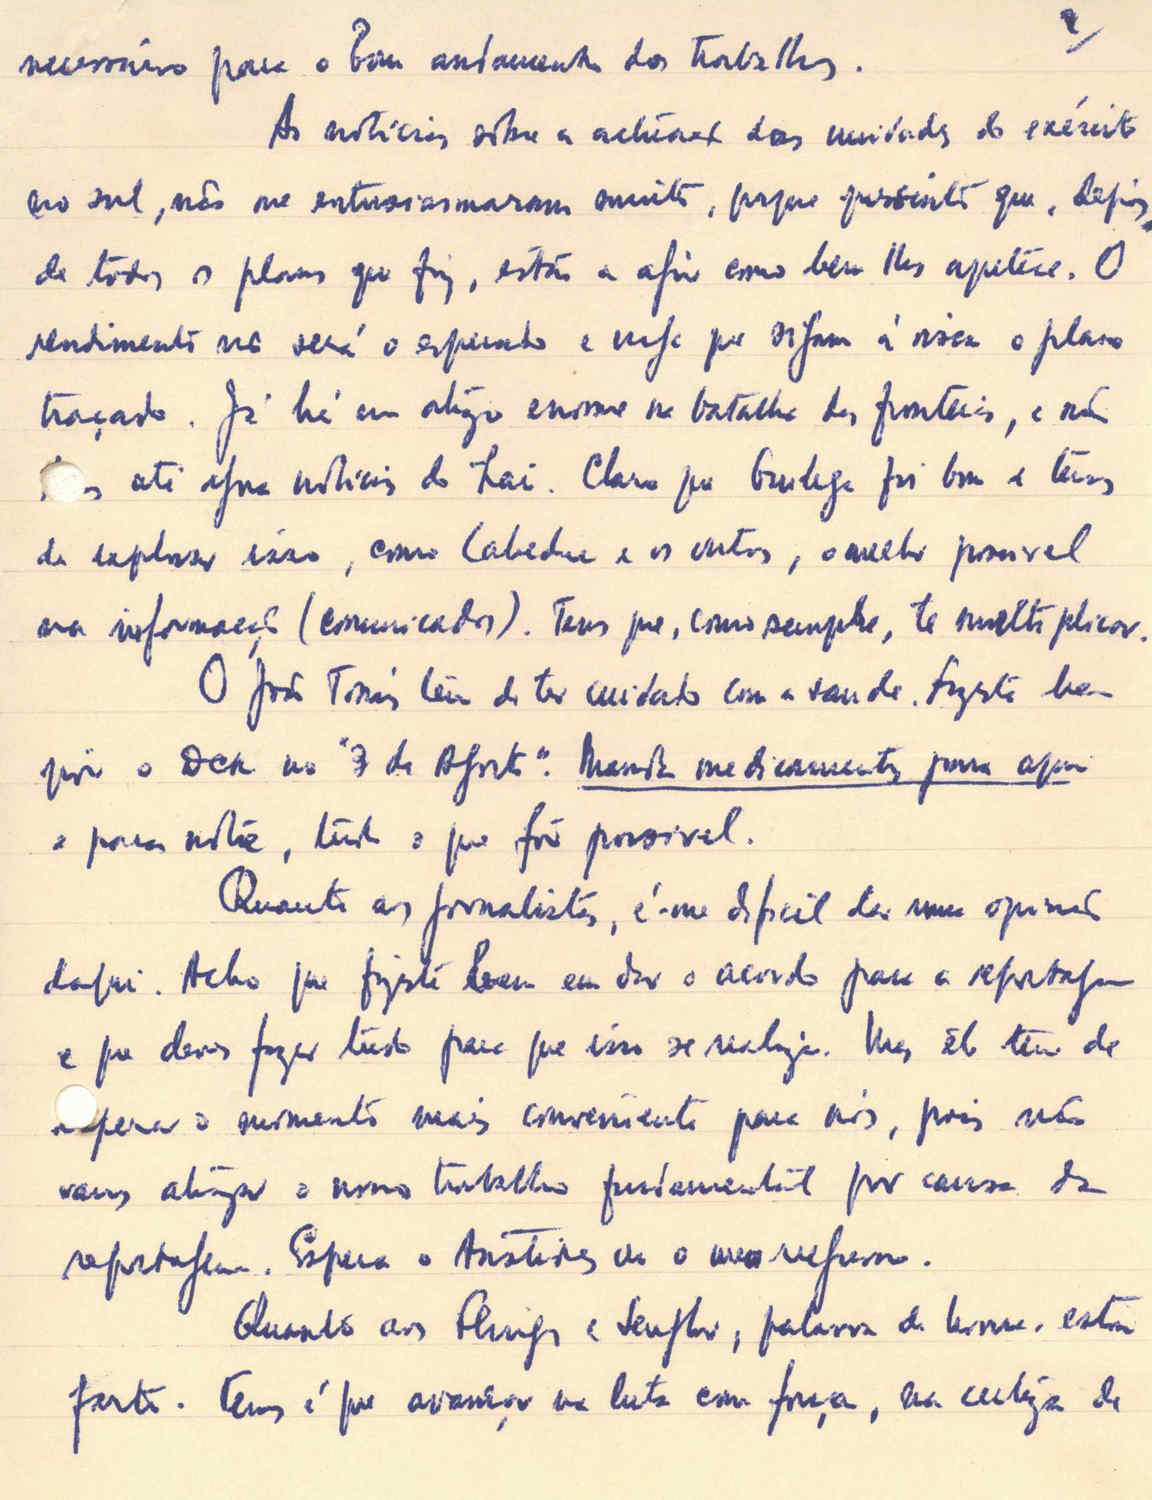 2/
necessário para o bom andamento dos trabalhos.
As notícias sôbre a actuação das unidades do exército
no sul, não me entusiasmaram muito, porque pressinto que, depois
de todos os planos que fiz, estão a agir como bem lhes apetece. O
rendimento não será o esperado e urge que sigam à risca o plano
traçado. Já há um atrazo enorme na batalha das fronteiras, e não
até agora notícias do Lai. Claro que Guilege foi bom e temos
de explorar isso, como Cabedu e os outros, o melhor possível
na informação (comunicados). Tens que, como sempre, te multiplicar.
O João Tomás tem de ter cuidado com a saúde. Fizeste bem
pôr o DCK no "3 de Agosto". Manda medicamentos para aqui
e para o norte, tudo o que fôr possível.
Quanto aos jornalistas, é-me difícil dar uma opinião
daqui. Acho que fizeste bem em dar o acordo para a reportagem
e que deves fazer tudo para que isso se realize. Mas êle tem de
esperar o momento mais conveniente para nós, pois não
vamos atrazar o nosso trabalho fundamental por causa da
reportagem. Espera o Aristides ou o meu regresso.
Quanto aos Flings e Senghor, palavra de honra, estou
farto. Temos é que avançar na luta com força, na certeza de